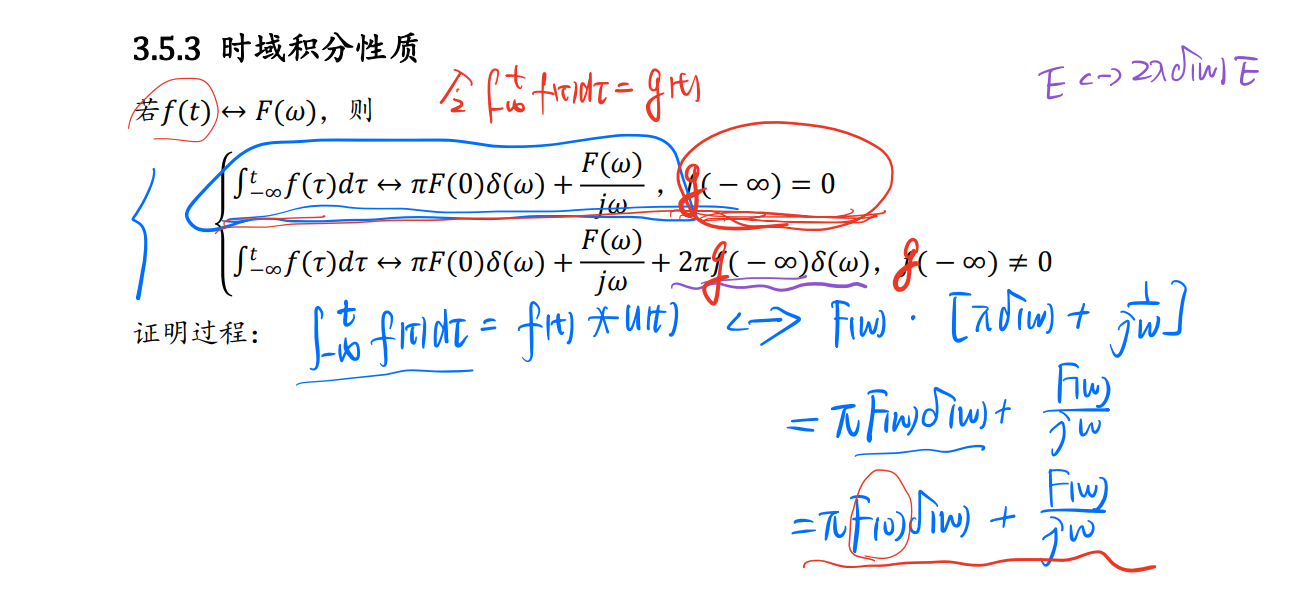 3.5.3 时域积分性质
E ↔ 2πδ(ω)E
若f(t) ↔ F(ω)，则
令 ∫_{-∞}^{t} f(τ)dτ = g(t)
∫_{-∞}^{t} f(τ)dτ ↔ πF(0)δ(ω) + F(ω)/jω ，g(−∞) = 0
∫_{-∞}^{t} f(τ)dτ ↔ πF(0)δ(ω) + F(ω)/jω + 2πg(−∞)δ(ω)，g(−∞) ≠ 0
证明过程：∫_{-∞}^{t} f(τ)dτ = f(t) * u(t) ↔ F(ω) · [πδ(ω) + 1/jω]
= πF(ω)δ(ω) + F(ω)/jω
= πF(0)δ(ω) + F(ω)/jω